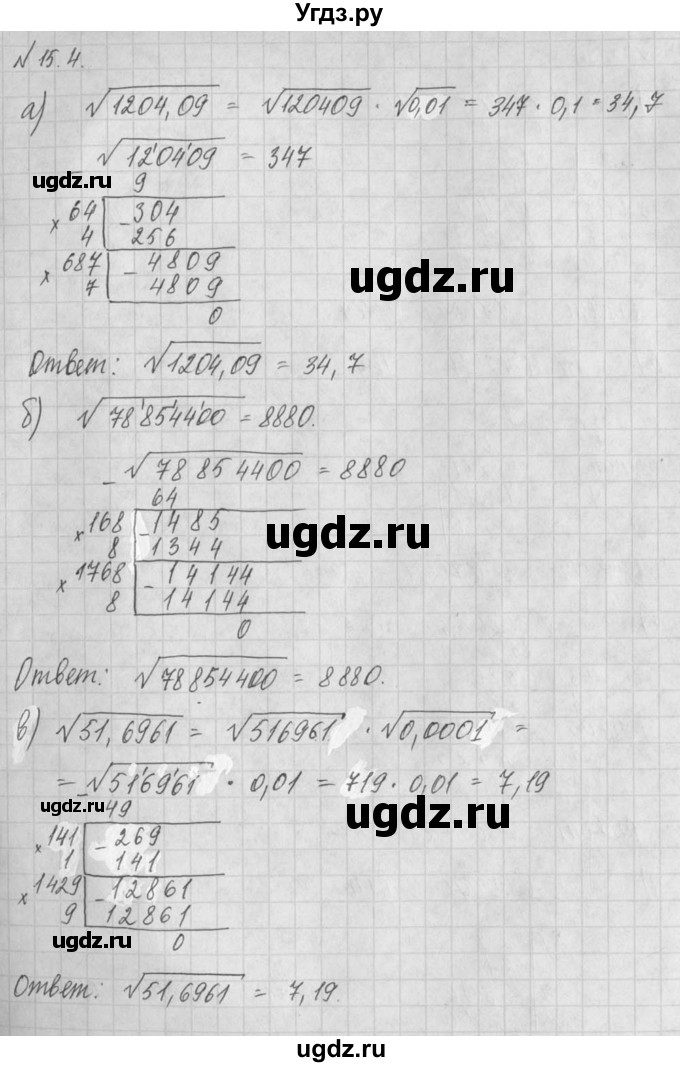 Угдз.ру
№ 15.4.
а) √1204,09 = √120409 · √0,01 = 347 · 0,1 = 34,7
√12'04'09 = 347
ugdz.ru
9
× 64 | - 304
4 | 256
× 687 | - 4809
7 | 4809
0
ugdz.ru
Ответ: √1204,09 = 34,7
б) √78'85'44'00 = 8880.
- √78 85 4400 = 8880
64
× 168 | - 1485
8 | 1344
ugdz.ru
× 1768 | - 14144
8 | 14144
0
Ответ: √78854400 = 8880.
в) √51,6961 = √516961 · √0,0001 =
= √51'69'61 · 0,01 = 719 · 0,01 = 7,19
ugdz.ru
- 49
ugdz.ru
× 141 | - 269
1 | 141
× 1429 | - 12861
9 | 12861
ugdz.ru
0
Ответ: √51,6961 = 7,19.
ugdz.ru